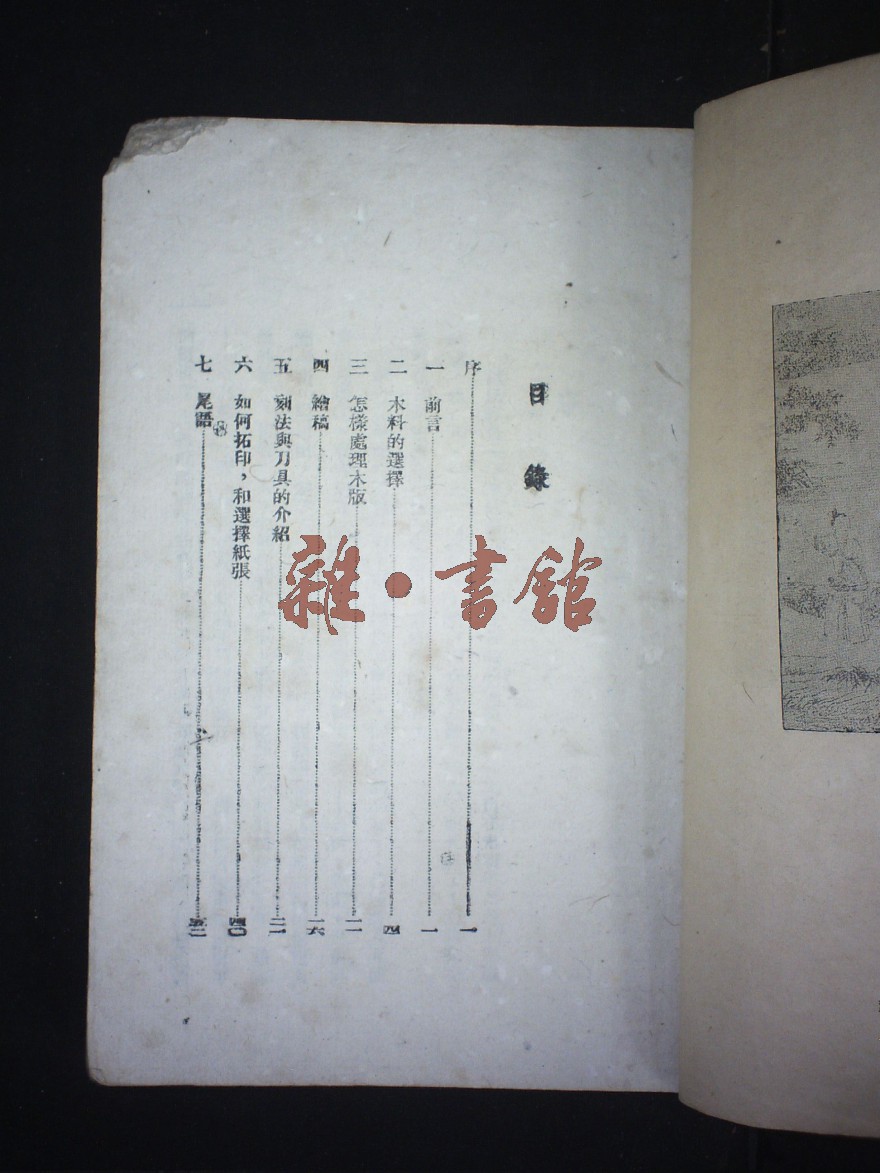 目錄
序……一
一 前言……一
二 木料的選擇……四
三 怎樣處理木版……一一
四 繪稿……一六
五 刻法與刀具的介紹……二一
六 如何拓印，和選擇紙張……四〇
七 尾語……
雜・書館